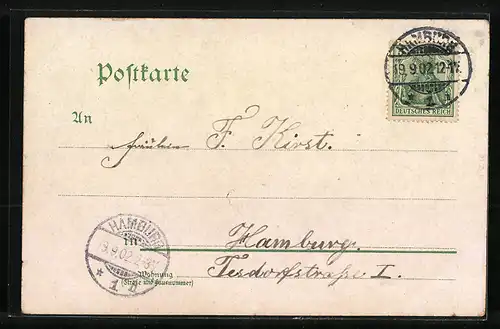 Postkarte
HAMBURG
19.9.02.12-1N.
* 1 l
DEUTSCHES REICH
An Fräulein F. Kirst.
HAMBURG
19.9.02.2-3N.
* 1 n
in Hamburg.
Wohnung
(Straße und Hausnummer)
Tesdorfstraße I.